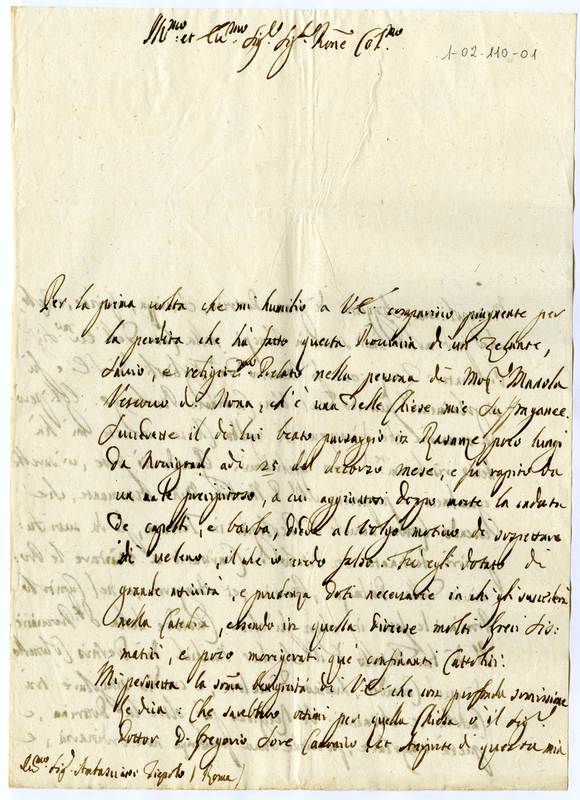 Ill.mo et Ecc.mo Sig.r Sig.r Pne Col.mo
1-02-110-01
Per la prima volta che mi humilio a V.E. comparisco piangente per
la perdita che hà fatto questa Provincia di un zelante,
savio, e religios.mo Prelato nella persona di Mons.r
Vescovo di Nona, ch'è una delle Chiese mie suffraganee.
il di lui beato passaggio in Razanze poco lungi
da Novigrad adi 25 del decorso mese, e fù rapito da
un male precipitoso, a cui aggiuntasi doppo morte la caduta
de capelli, e barba, diede al volgo motivo di sospettare
di veleno, il che io credo falso. Fù egli dotato di
grande attività, e prudenza doti necessarie in chi gli succederà
nella Catedra, essendo in quella diocese molti Greci Sis:
matici, e poco morigerati que confinanti Cattolici.
Mi permetta la somma benignità di V.E. che con profonda sommissione
le dia: Che sarebbero ottimi per quella Chiesa ò il Sig.r
Dottor D. Gregorio Canonico et di questa mia
Ecc.mo Sig.r Ambasciator Tiepolo (Roma)